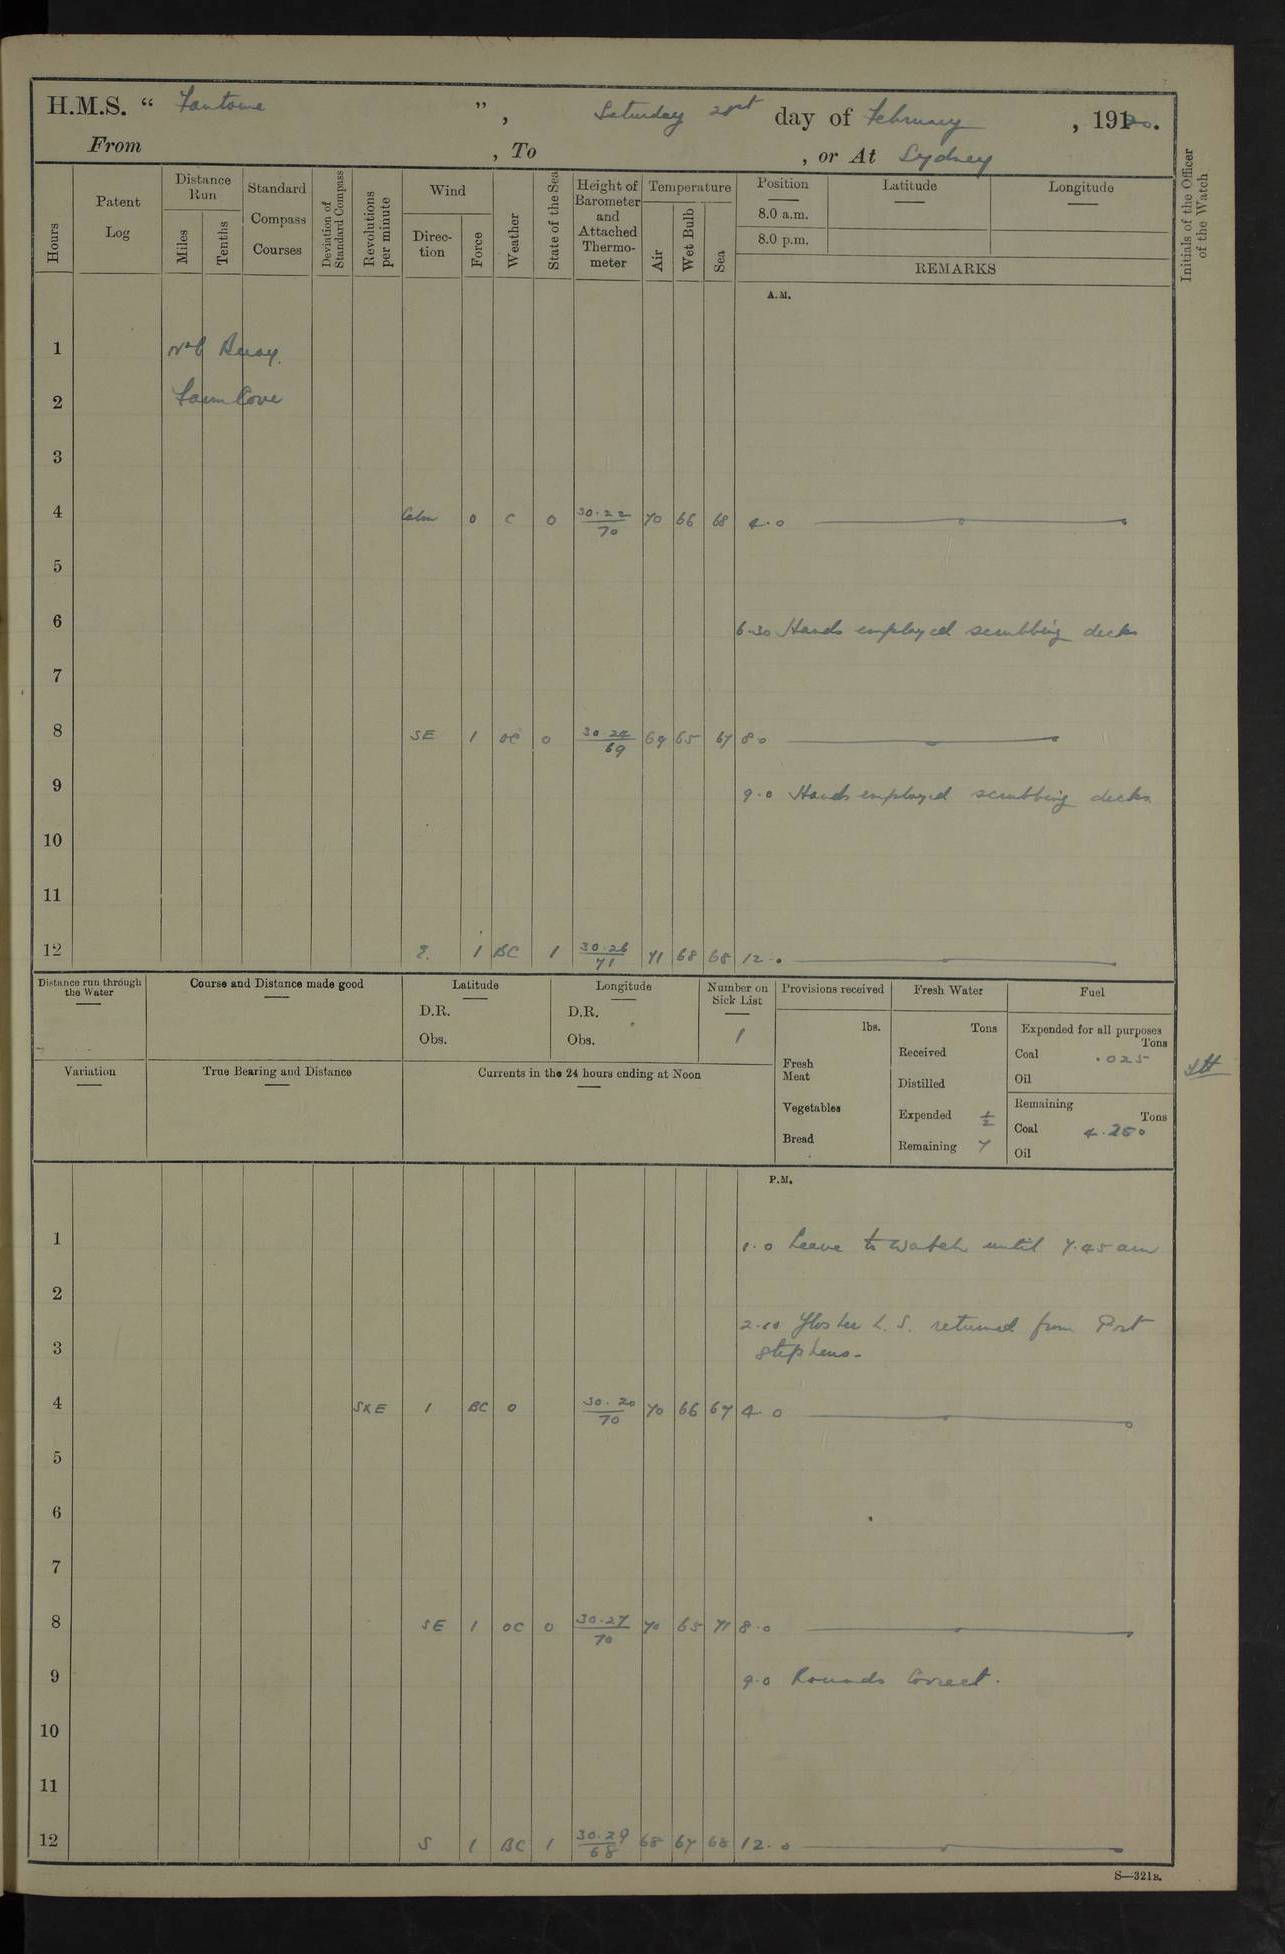 H.M.S. “ Fantome ”, Saturday 21st day of February, 1920.
From , To , or At Sydney
Hours
Patent Log
Distance Run
Miles
Tenths
Standard Compass Courses
Deviation of Standard Compass
Revolutions per minute
Wind
Direc-tion
Force
Weather
State of the Sea
Height of Barometer and Attached Thermo-meter
Temperature
Air
Wet Bulb
Sea
Position
8.0 a.m.
8.0 p.m.
Latitude
Longitude
REMARKS
Initials of the Officer of the Watch
A.M.
1 Buoy.
2 Farm Cove
3
4 Calm 0 C 0 30.22/70 70 66 68 4.0
5
6 6.30 Hands employed scrubbing decks
7
8 SE 1 OC 0 30.24/69 69 65 67 8.0
9 9.0 Hands employed scrubbing decks
10
11
12 E. 1 BC 1 30.26/71 71 68 68 12.0
Distance run through the Water
Course and Distance made good
Latitude
D.R.
Obs.
Longitude
D.R.
Obs.
Number on Sick List
1
Provisions received
lbs.
Fresh Meat
Vegetables
Bread
Fresh Water
Tons
Received
Distilled
Expended ½
Remaining 7
Fuel
Expended for all purposes
Tons
Coal .025
Oil
Remaining
Tons
Coal 4.250
Oil
Variation
True Bearing and Distance
Currents in the 24 hours ending at Noon
P.M.
1 1.0 Leave to Watch until 7.45 am
2
2.10 L.S. returned from Port
3 Stephens.
4 SXE 1 BC 0 30.20/70 70 66 67 4.0
5
6
7
8 SE 1 OC 0 30.27/70 70 65 71 8.0
9 9.0 Rounds Correct.
10
11
12 S 1 BC 1 30.29/68 68 67 68 12.0
S—321B.